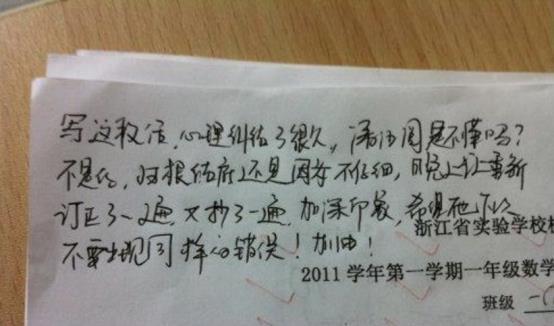 写这段话,心理纠结了很久,是不懂吗?
不是的,归根结底还是因为不仔细,晚上让重新
订正了一遍又抄了一遍,加深印象,希望他下次
不要出现同样的错误!加油!
浙江省实验学校
2011 学年第一学期一年级数学
班级